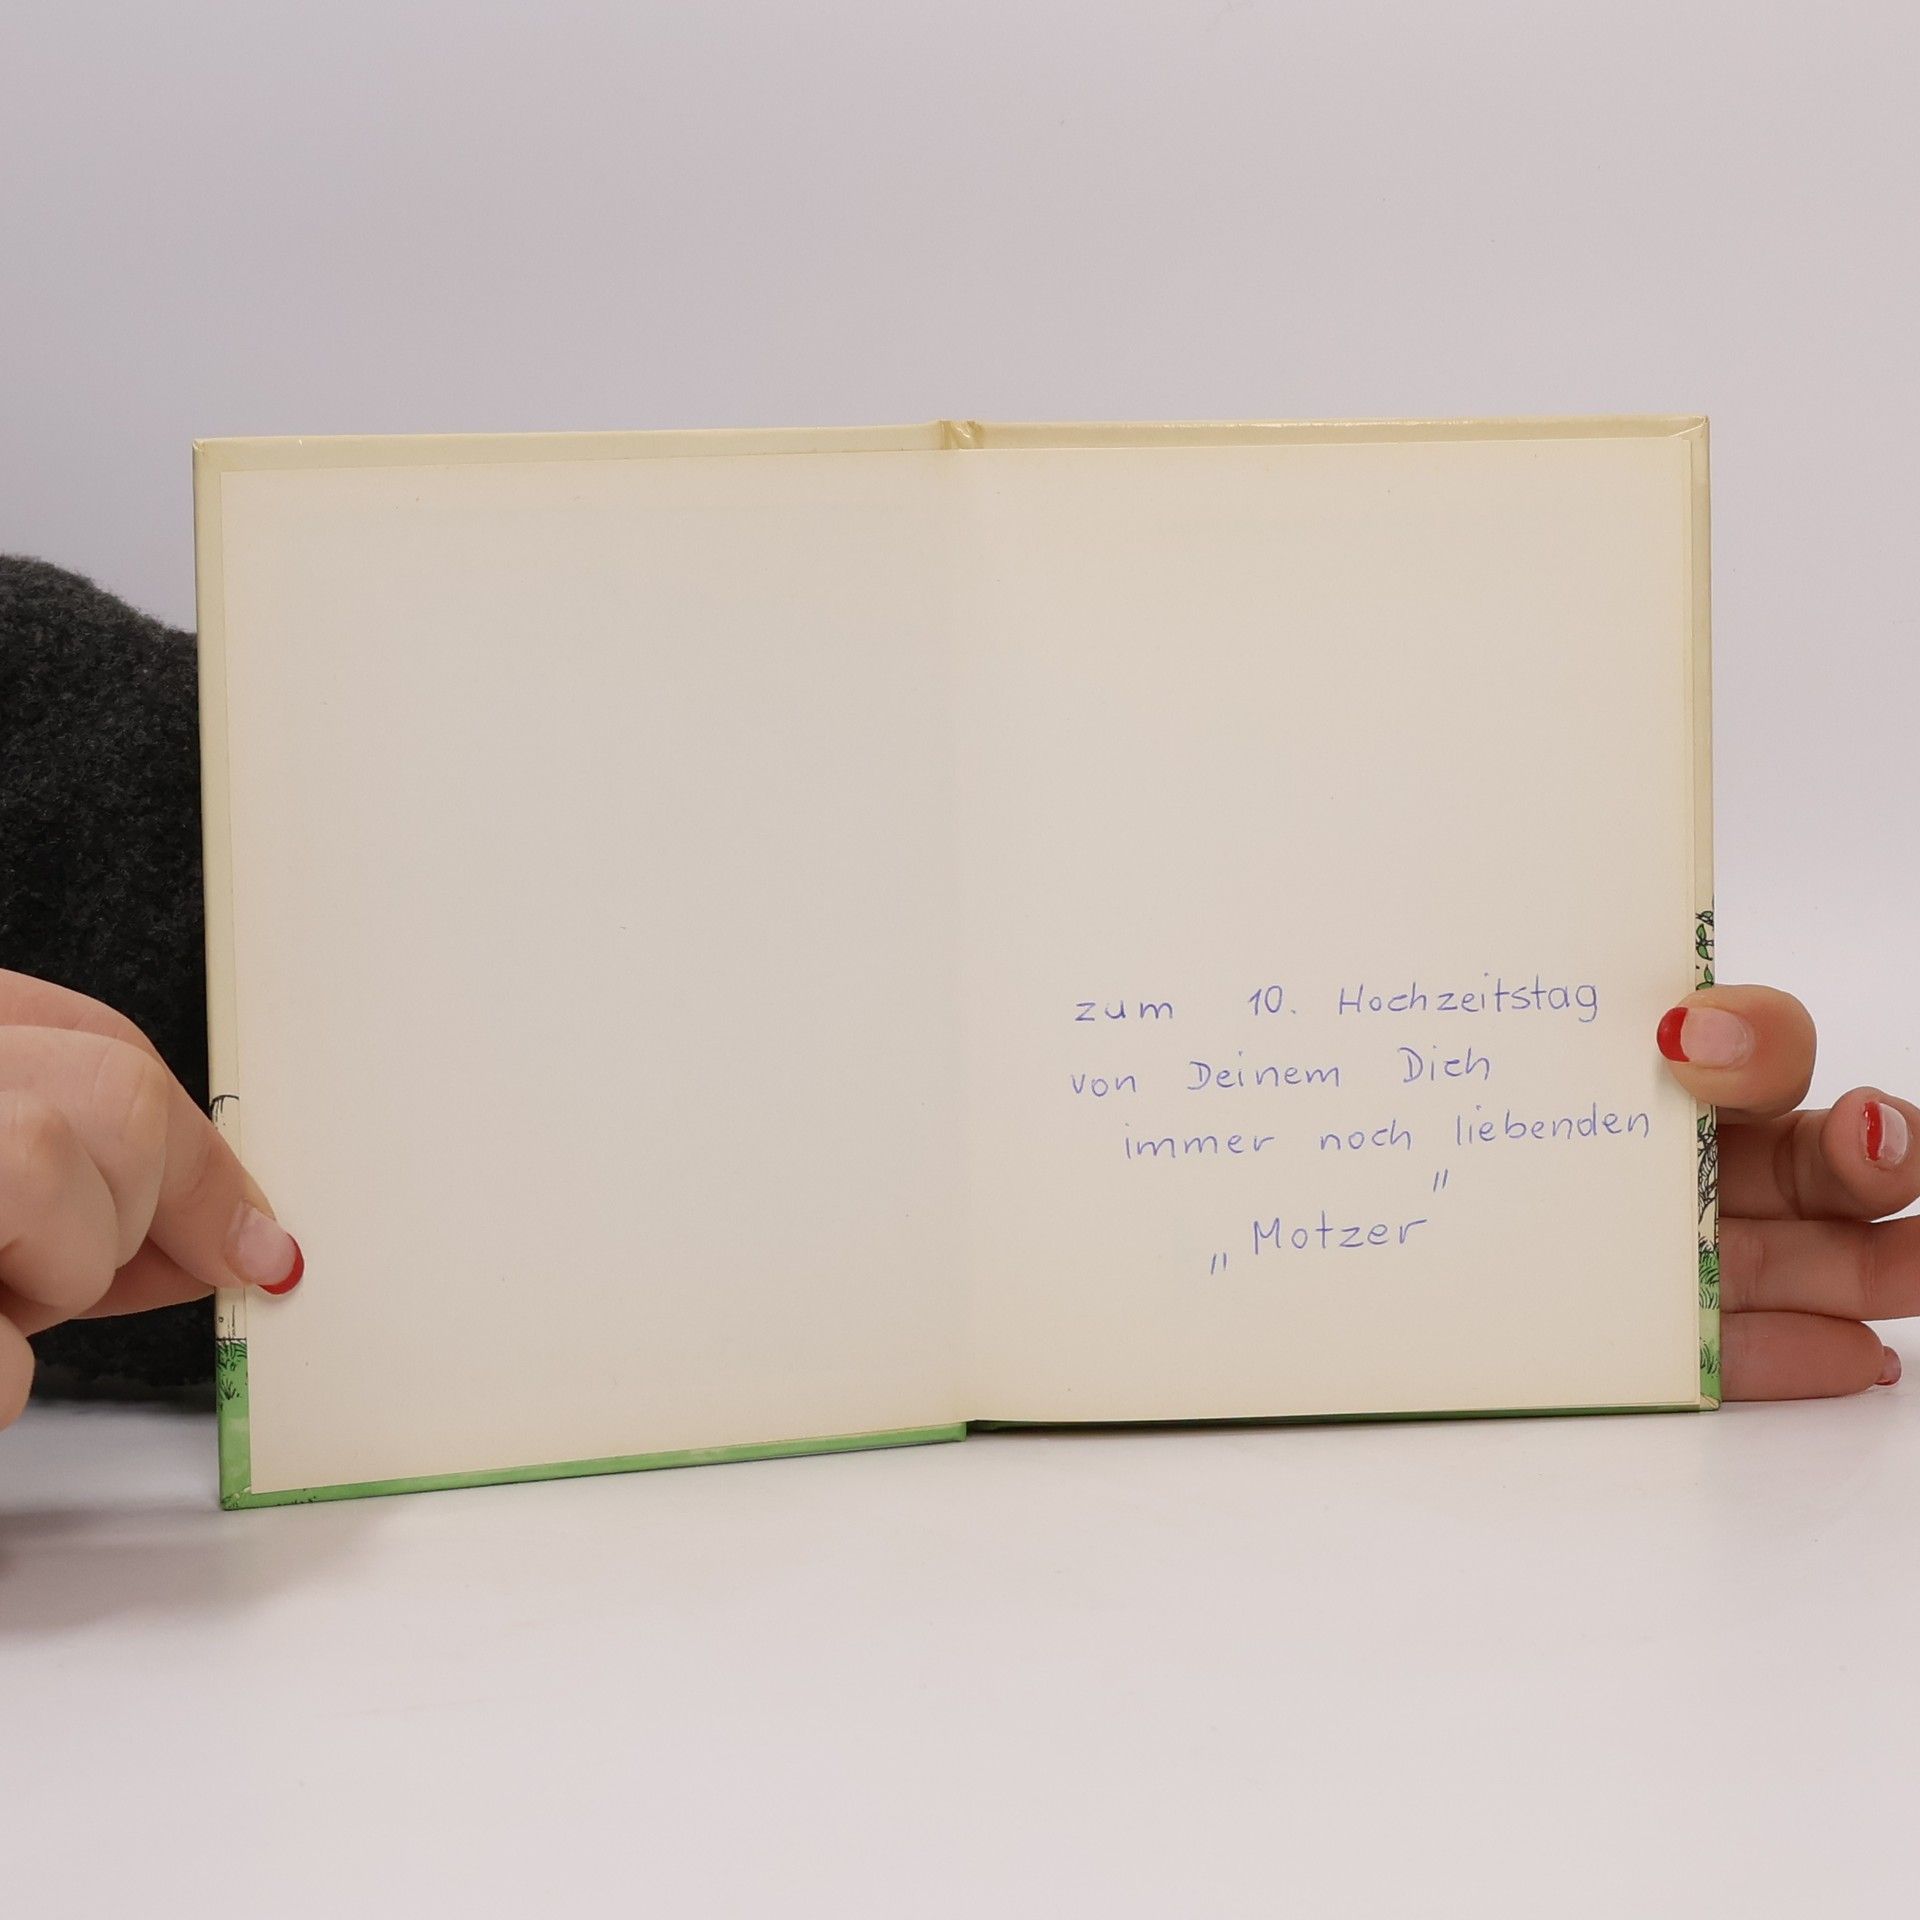 zum 10. Hochzeitstag
von Deinem Dich
immer noch liebenden
„Motzer"